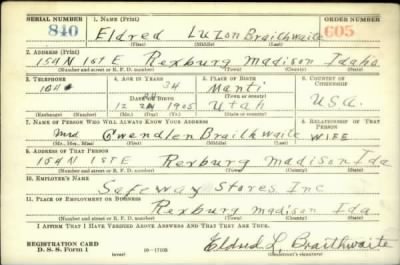 SERIAL NUMBER 1. NAME (Print) ORDER NUMBER
840 Eldred Luzon Braithwaite 605
(First) (Middle) (Last)
2. ADDRESS (Print)
154 N 1st E Rexburg Madison Idaho
(Number and street or R. F. D. number) (Town) (County) (State)
3. TELEPHONE 4. AGE IN YEARS 5. PLACE OF BIRTH 6. COUNTRY OF CITIZENSHIP
34 Manti
DATE OF BIRTH (Town or county)
12 1905 Utah USA.
(Mo.) (Day) (Yr.) (State or country)
7. NAME OF PERSON WHO WILL ALWAYS KNOW YOUR ADDRESS 8. RELATIONSHIP OF THAT PERSON
Mrs Gwendlen Braithwaite WIFE
(Mr., Mrs., Miss) (First) (Middle) (Last)
9. ADDRESS OF THAT PERSON
154 N 1ST E Rexburg Madison Ida
(Number and street or R. F. D. number) (Town) (County) (State)
10. EMPLOYER'S NAME
Safeway Stores Inc
11. PLACE OF EMPLOYMENT OR BUSINESS
Rexburg Madison Ida
(Number and street or R. F. D. number) (Town) (County) (State)
I AFFIRM THAT I HAVE VERIFIED ABOVE ANSWERS AND THAT THEY ARE TRUE.
REGISTRATION CARD
D. S. S. Form 1 (over) 16—17105 Eldred L. Braithwaite
(Registrant's signature)